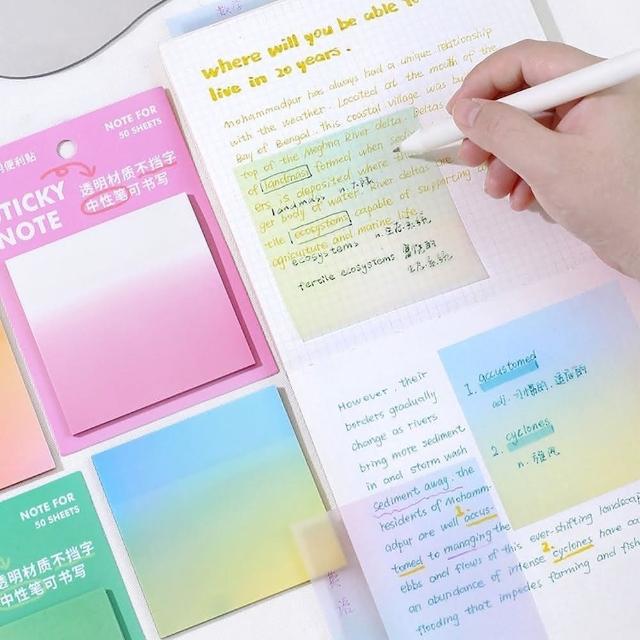 数学
where will you be able to
live in 20 years.
Mohammadpur has always had a unique relationship
with the weather. Located at the mouth of the
Bay of Bengal. This coastal village was
top of the Meghna River delta. Deltas
of landmass formed when
ers is deposited where
landmass n.
ger body of water. River deltas
tile ecosystems capable of supporting
ecosystems n.生态系统
agriculture and marine life.
fertile ecosystems 富饶的
生态系统
NOTE FOR
50 SHEETS
便利贴
STICKY
NOTE
透明材质不挡字
中性笔可书写
However, their
borders gradually
change as rivers
bring more sediment
in and storm wash
sediment away. the
residents of Mohamm-
adpur are will 1. accus-
tomed to managing the
ebbs and flows of this ever-shifting landsca
an abundance of intense 2. cyclones have
flooding that impedes farming and fish
1. accustomed
adj. 习惯的,适应的
2. cyclones
n.
英语
NOTE FOR
50 SHEETS
透明材质不挡字
中性笔可书写